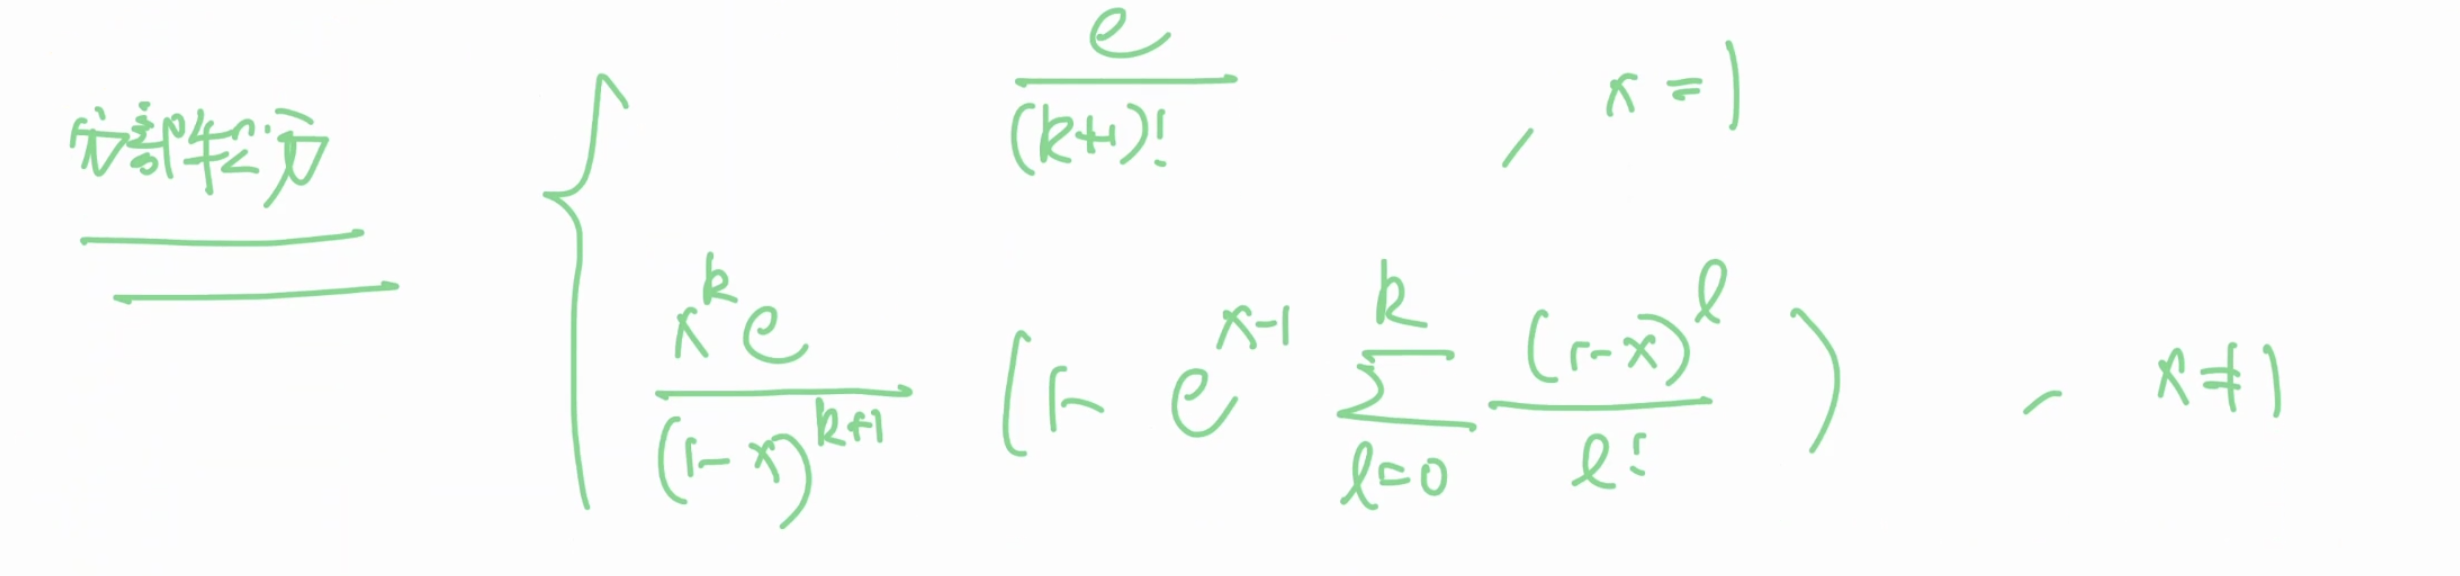 e / (k+1)! , x = 1
x^k e / (1-x)^{k+1} (1 - e^{x-1} \sum_{l=0}^{k} (1-x)^l / l! ) , x ≠ 1